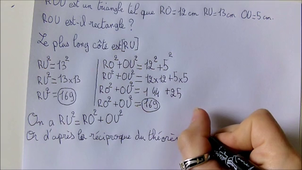 ROU est un triangle tel que RO=12 cm RU=13 cm OU=5 cm.
ROU est-il rectangle ?
Le plus long côté est [RU]
RU²=13² | RO²+OU²=12²+5²
RU²=13×13 | RO²+OU²=12×12+5×5
RU²=169 | RO²+OU²=144+25
RO²+OU²=169
On a RU²=RO²+OU²
Or d'après la réciproque du théorè